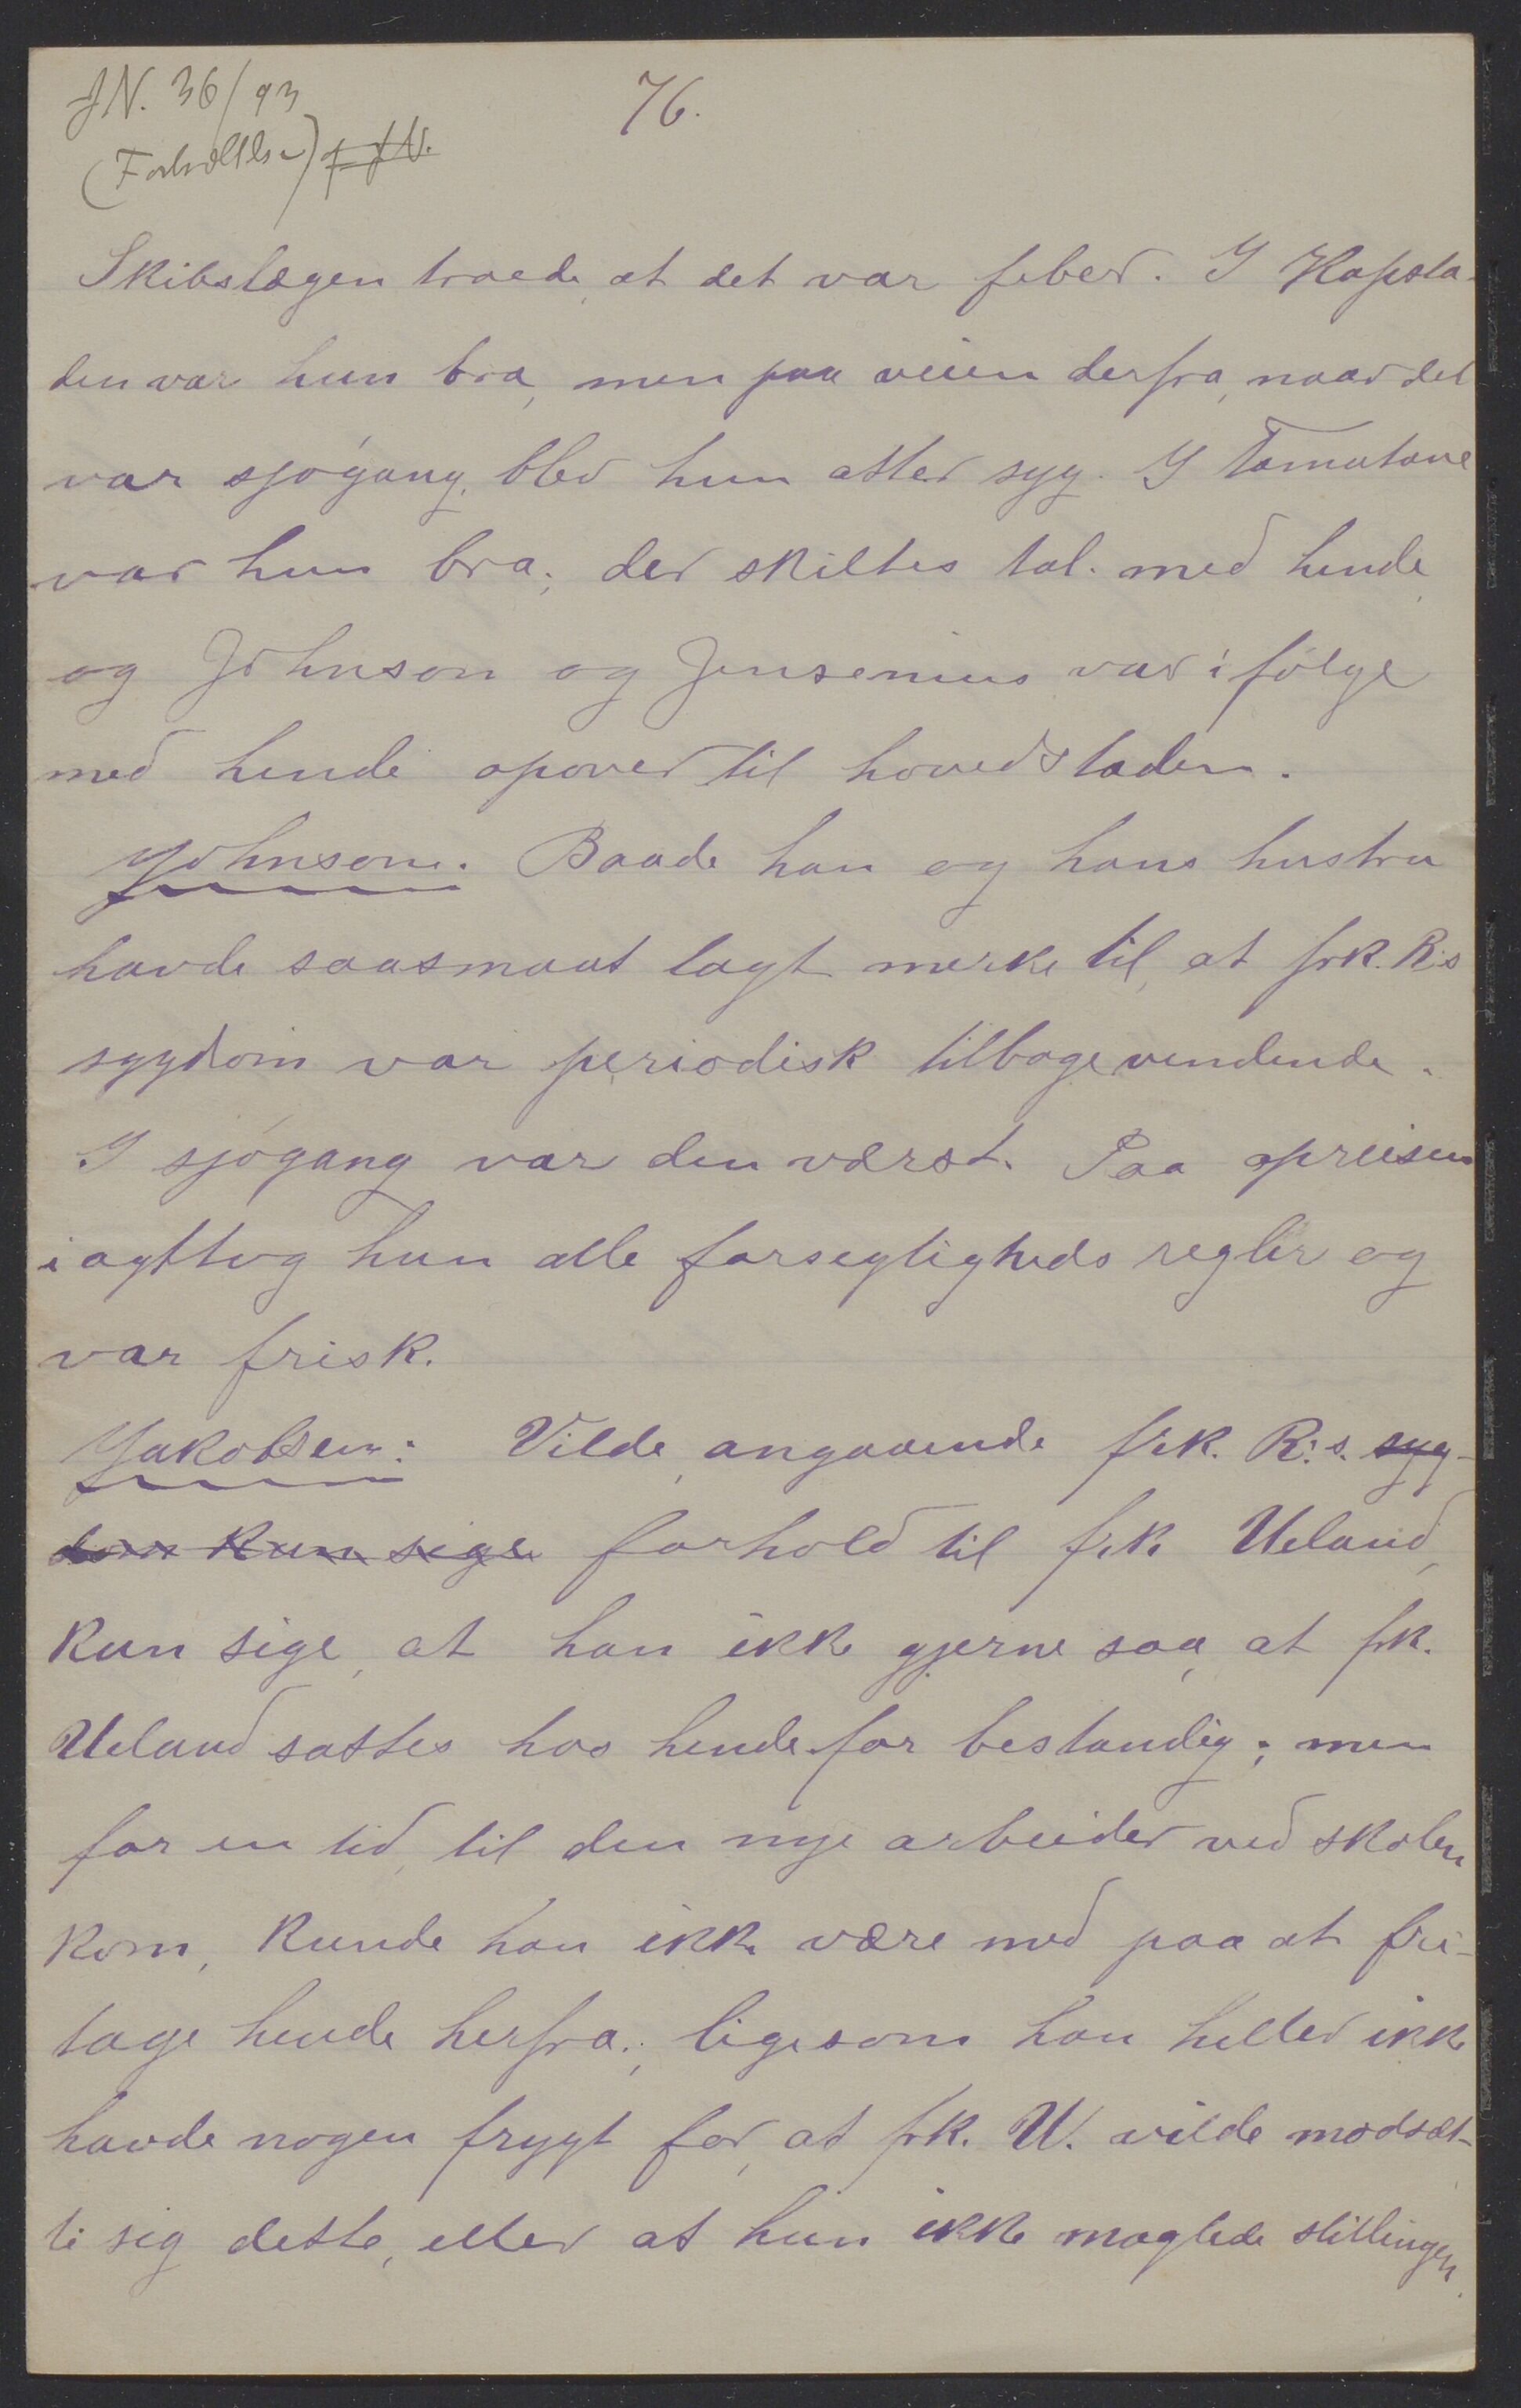 JN. 36/93
76.
(Forhættelse)
Skibslægen troede, at det var feber. I Kapsta-
den var hun bra, men paa veien derfra, naar det
var sjögang, blev hun atter syg. I Tamatave
var hun bra; der skiltes tal. med hende,
og Johnson og Jensenius var i fölge
med hende opover til hovedstaden.
Johnson. Baade han og hans hustru
havde saasmaat lagt merke til, at frk. R:s
sygdom var periodisk tilbagevendende.
I sjögang var den værst. Paa opreisen
iagttog hun alle forsegtigheds regler og
var frisk.
Jakobsen: Vilde, angaaende frk. R:s. syg-
dom kun sige forhold til frk. Ueland,
kun sige, at han ikke gjerne saa, at frk.
Ueland sattes hos hende for bestandig; men
for en tid, til den nye arbeider ved skolen
kom, kunde han ikke være med paa at fri-
tage hende herfra; ligesom han heller ikke
havde nogen frygt for, at frk. U. vilde modsæt-
te sig dette, eller at hun ikke magtede stillingen.